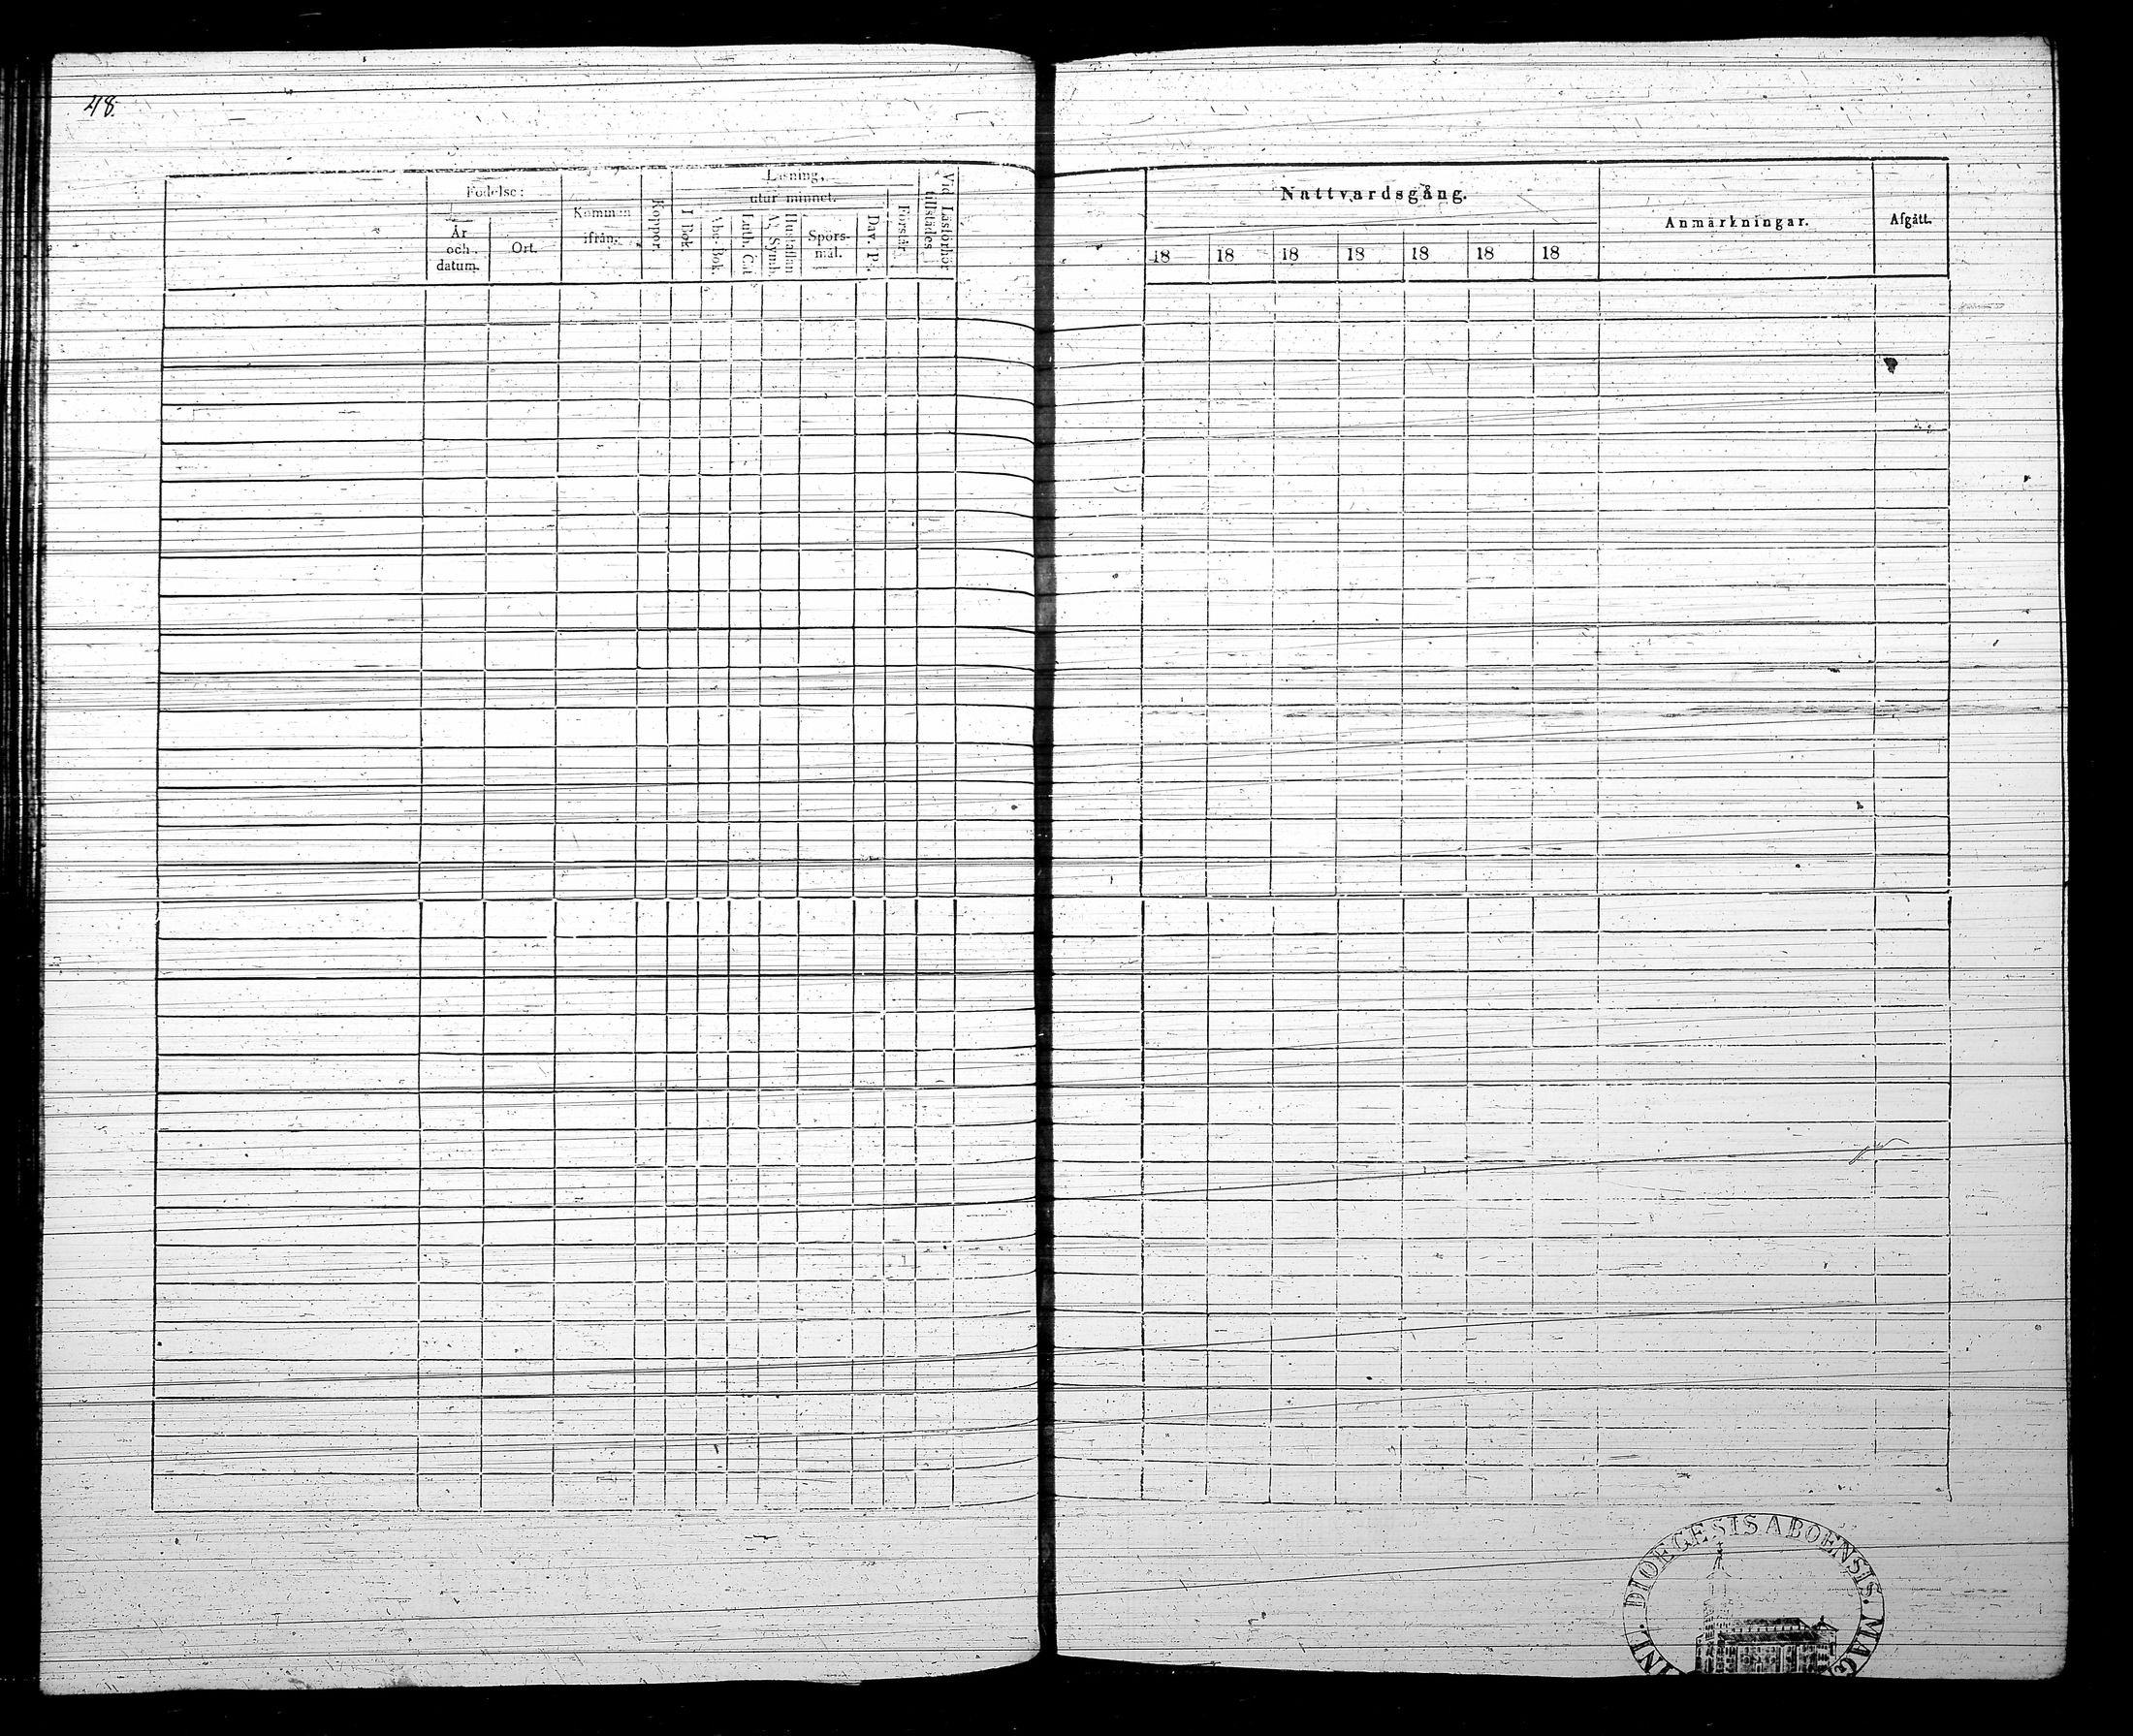 48.
Födelse:
År
och
datum.
Ort.
Kommen
ifrån.
Koppor.
Läsning,
utur minnet.
I Bok.
Abc-Bok
Luth. Cat
Hustaflan
A. Symb.
Spörs-
mål.
Dav. Ps.
Förstår.
Vid Läsförhör
tillstädes
Nattvardsgång.
18 18 18 18 18 18 18
Anmärkningar.
Afgått.
DIOECESIS ABOENSIS. MAG